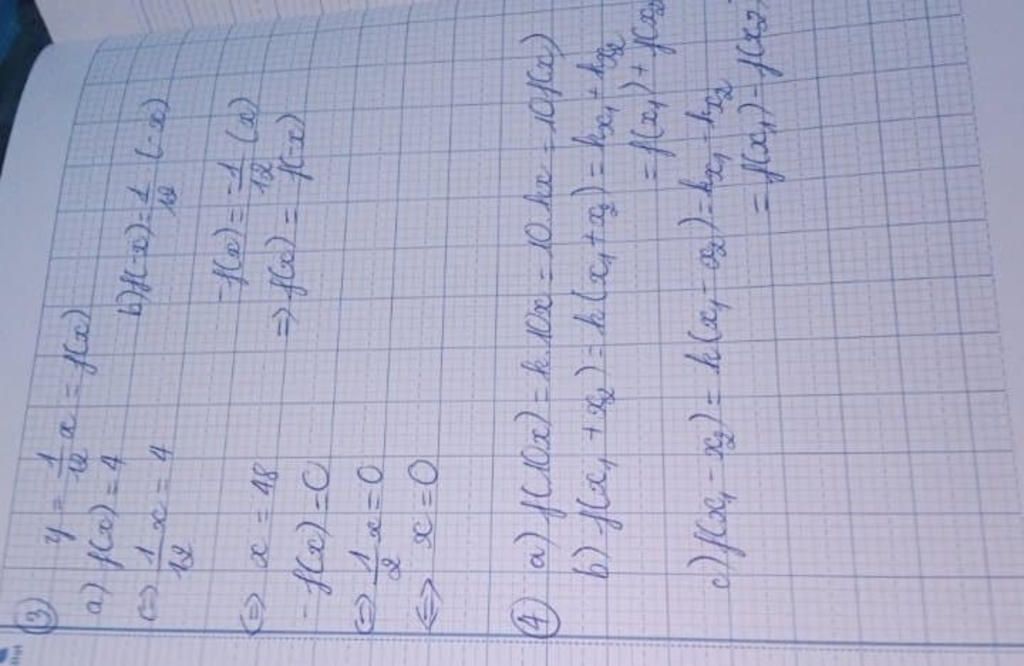 ③ y = 1/12 x = f(x)
a) f(x) = 4
(=) 1/12 x = 4
(=) x = 48
- f(x) = 0
(=) 1/2 x = 0
<=> x = 0
b) f(-x) = 1/12 (-x)
-f(x) = 1/12 (x)
=> f(x) = f(-x)
④ a) f(10x) = k.10x = 10.kx = 10f(x)
b) f(x₁ + x₂) = k(x₁ + x₂) = kx₁ + kx₂
= f(x₁) + f(x₂
c) f(x₁ - x₂) = k(x₁ - x₂) = kx₁ - kx₂
= f(x₁) - f(x₂)